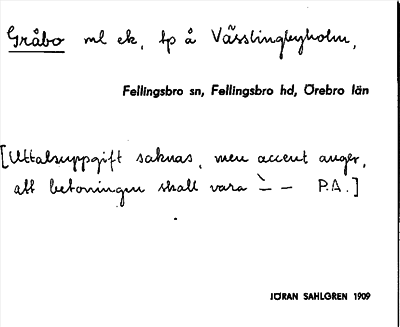 Gråbo ml ek, tp å Vässlingbyholm,
Fellingsbro sn, Fellingsbro hd, Örebro län
[Uttalsuppgift saknas, men accent anger,
att betoningen skall vara ̀– – P.A.]
JÖRAN SAHLGREN 1909